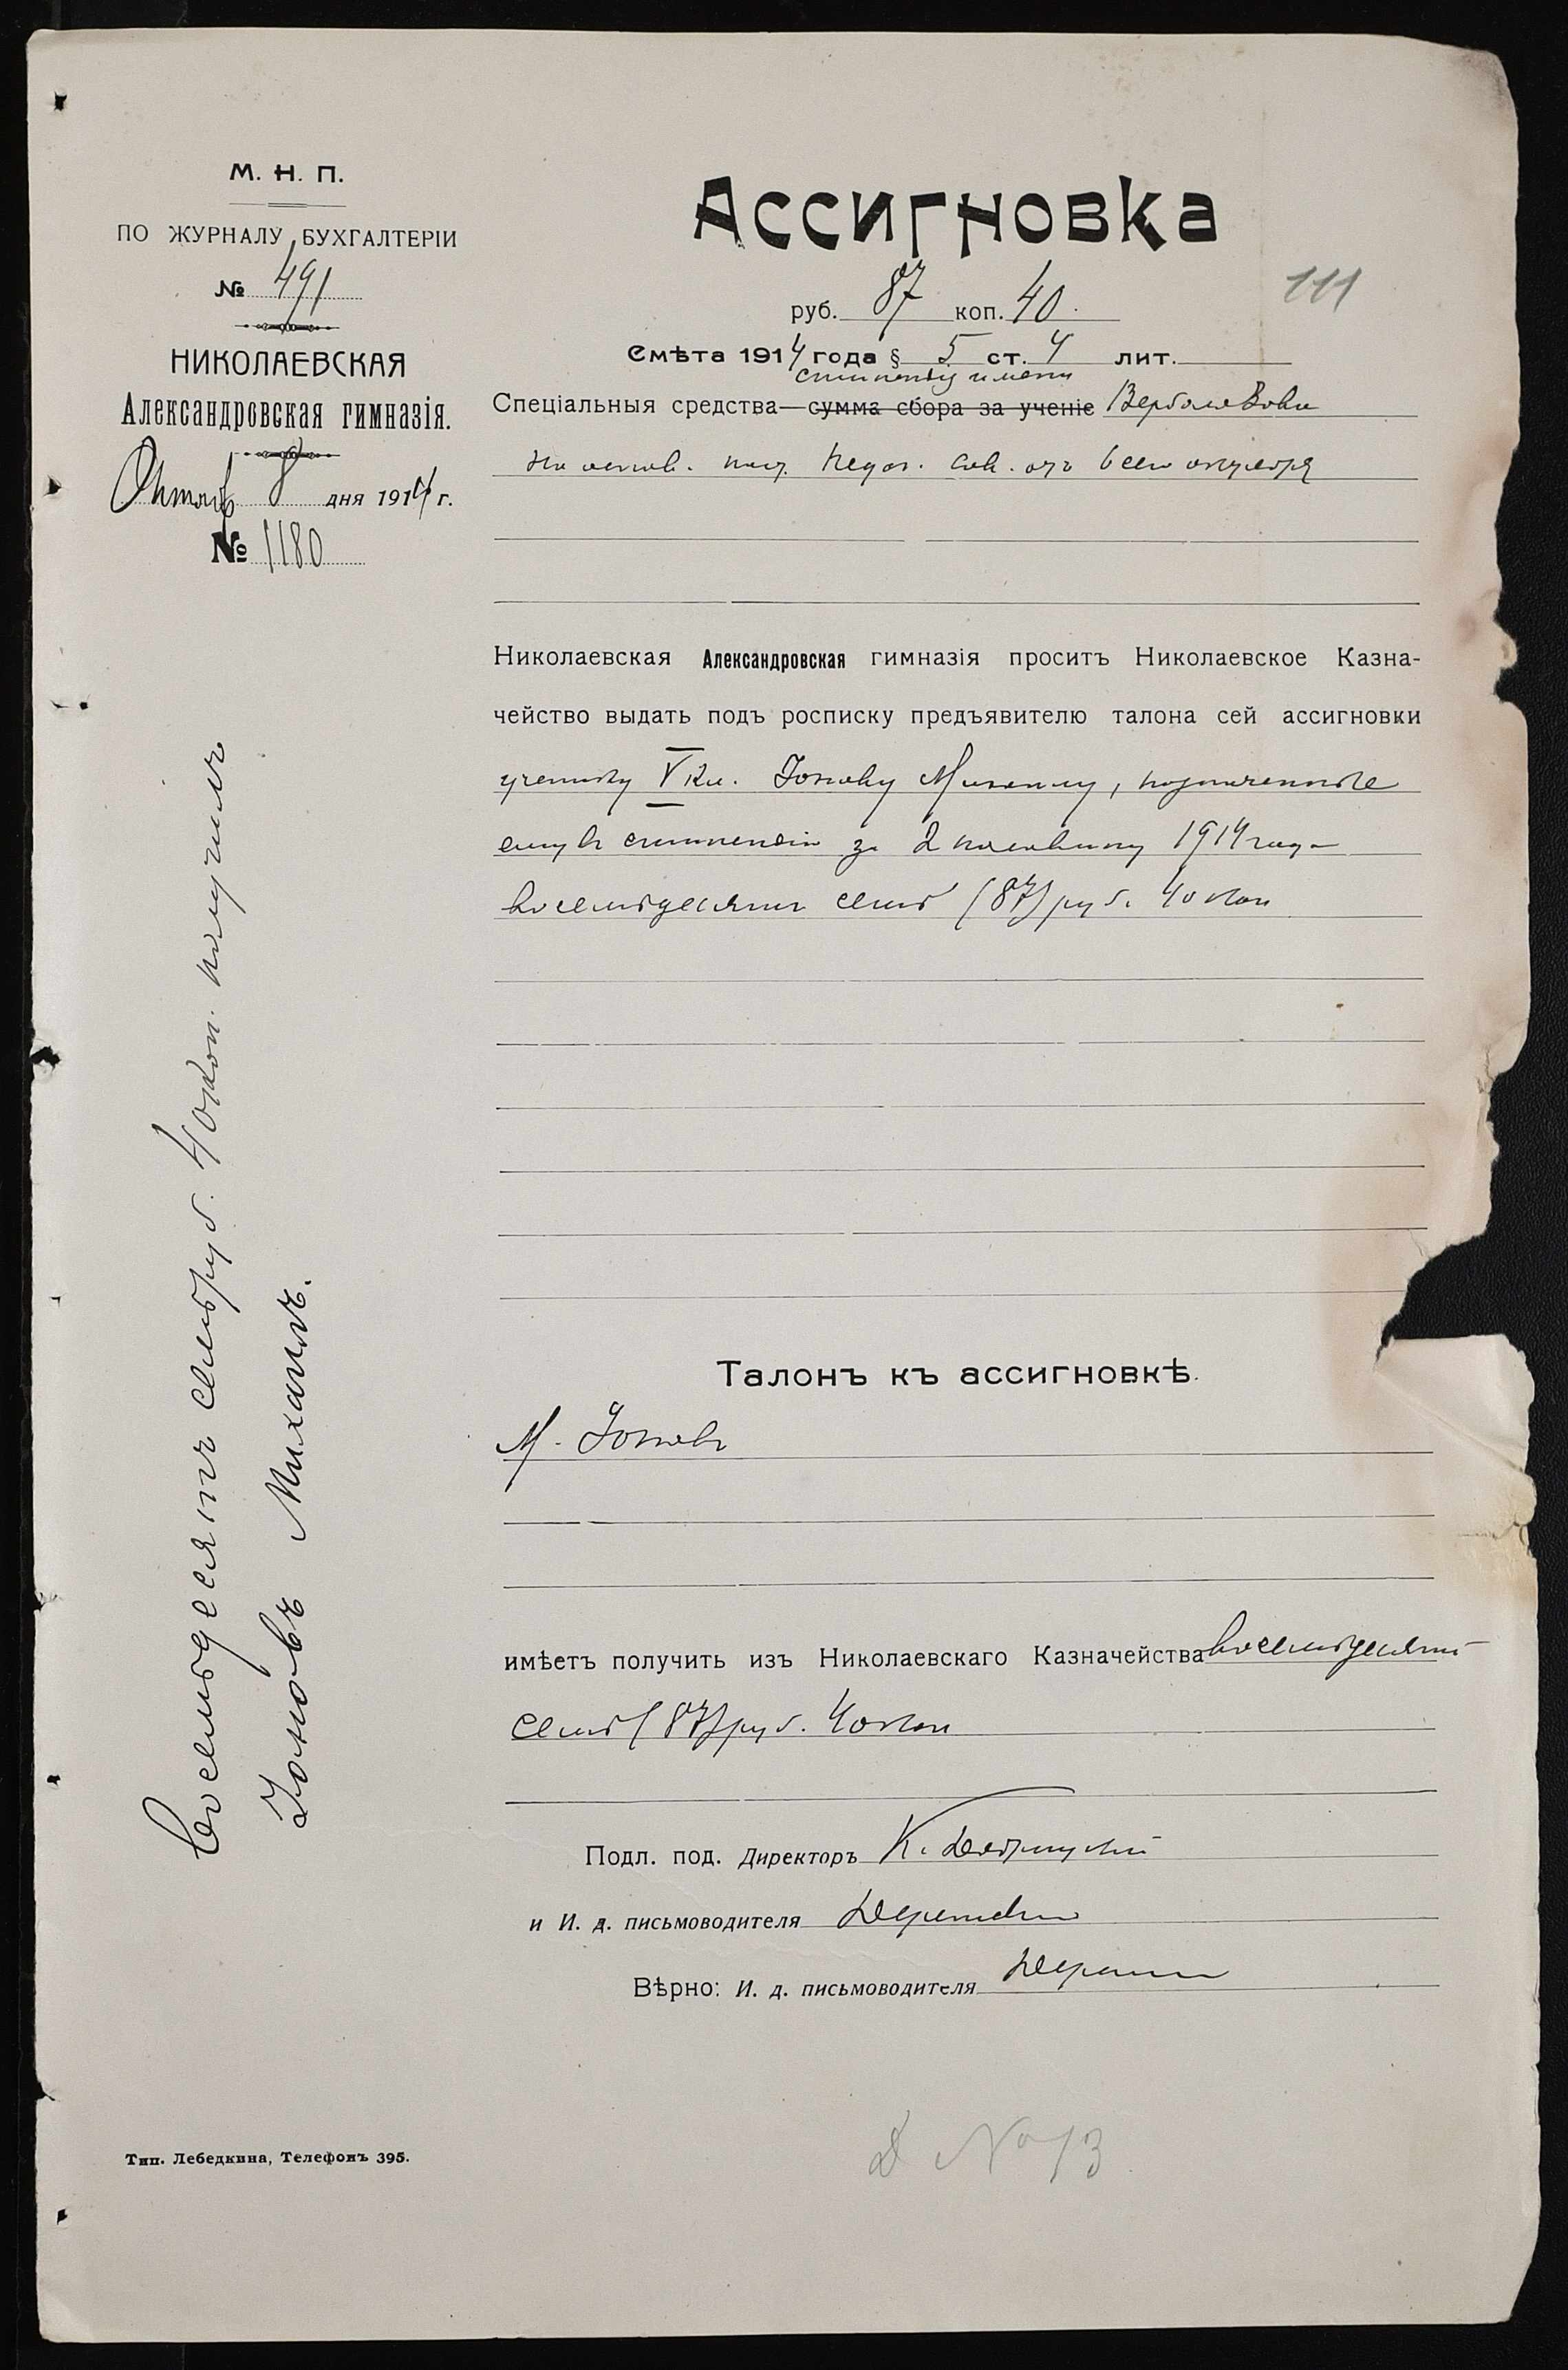 М. Н. П.
ПО ЖУРНАЛУ БУХГАЛТЕРІИ
№ 491
НИКОЛАЕВСКАЯ
Александровская гимназія.
Октяб 8 дня 1914 г.
№ 1180
Ассигновка
111
руб. 87 коп. 40
Смѣта 1914 года § 5 ст. 4 лит.
стипендіи имени
Спеціальныя средства—сумма сбора за ученіе
На основ. пост. Педаг. Сов. отъ 6 сего октября
Николаевская Александровская гимназія проситъ Николаевское Казна-
чейство выдать подъ росписку предъявителю талона сей ассигновки
ученику V кл. Іонову Михаилу, назначенные
ему въ стипендію за 2 половину 1914 года
восемьдесятъ семь (87) руб. 40 коп
Восемьдесятъ семь руб. 40 коп. получилъ
Іоновъ Михаилъ.
Талонъ къ ассигновкѣ.
М. Іоновъ
имѣетъ получить изъ Николаевскаго Казначейства восемьдесятъ
семь (87) руб. 40 коп
Подл. под. Директоръ К.
и И. д. письмоводителя
Вѣрно: И. д. письмоводителя
Тип. Лебедкина, Телефонъ 395.
№ 13